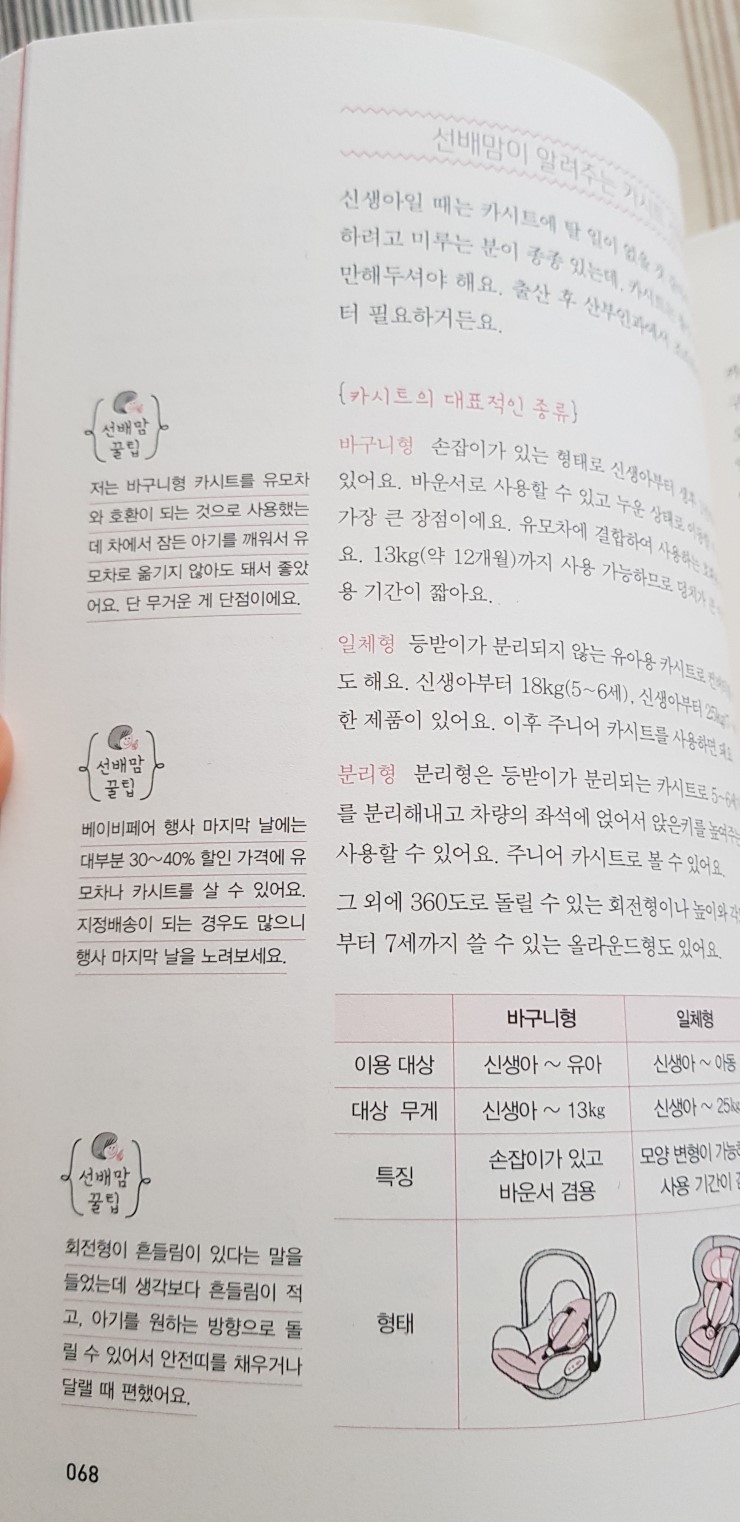 선배맘이 알려주는 카시트
신생아일 때는 카시트에 탈 일이 없을 것
하려고 미루는 분이 종종 있는데, 카시트는
만해두셔야 해요. 출산 후 산부인과에서
터 필요하거든요.
{카시트의 대표적인 종류}
바구니형 손잡이가 있는 형태로 신생아부터 생후
있어요. 바운서로 사용할 수 있고 누운 상태로
가장 큰 장점이에요. 유모차에 결합하여 사용하는
요. 13kg(약 12개월)까지 사용 가능하므로 덩치가 큰
용 기간이 짧아요.
일체형 등받이가 분리되지 않는 유아용 카시트로
도 해요. 신생아부터 18kg(5~6세), 신생아부터 25kg
한 제품이 있어요. 이후 주니어 카시트를 사용하면 돼요
분리형 분리형은 등받이가 분리되는 카시트로 5~6세
를 분리해내고 차량의 좌석에 얹어서 앉은키를 높여주는
사용할 수 있어요. 주니어 카시트로 볼 수 있어요.
그 외에 360도로 돌릴 수 있는 회전형이나 높이와
부터 7세까지 쓸 수 있는 올라운드형도 있어요.
선배맘
꿀팁
저는 바구니형 카시트를 유모차
와 호환이 되는 것으로 사용했는
데 차에서 잠든 아기를 깨워서 유
모차로 옮기지 않아도 돼서 좋았
어요. 단 무거운 게 단점이에요.
선배맘
꿀팁
베이비페어 행사 마지막 날에는
대부분 30~40% 할인 가격에 유
모차나 카시트를 살 수 있어요.
지정배송이 되는 경우도 많으니
행사 마지막 날을 노려보세요.
선배맘
꿀팁
회전형이 흔들림이 있다는 말을
들었는데 생각보다 흔들림이 적
고, 아기를 원하는 방향으로 돌
릴 수 있어서 안전띠를 채우거나
달랠 때 편했어요.
바구니형 일체형
이용 대상 신생아 ~ 유아 신생아 ~ 아동
대상 무게 신생아 ~ 13kg 신생아 ~ 25kg
특징 손잡이가 있고 모양 변형이
바운서 겸용 사용 기간이
형태
068